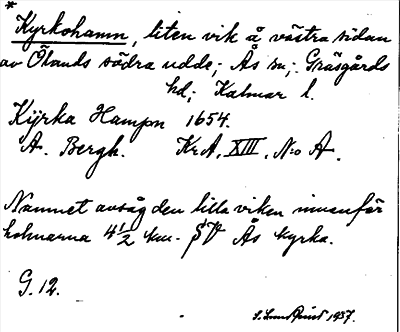 *
Kyrkohamn, liten vik å västra sidan
av Ölands södra udde; Ås sn; Gräsgårds
hd; Kalmar l.
Kÿrka Hampn 1654.
A. Bergh. Kr A, XIII, N:o A.
Namnet avsåg den lilla viken innanför
holmarna 4½ km. SV Ås kyrka.
G. 12.
1937.